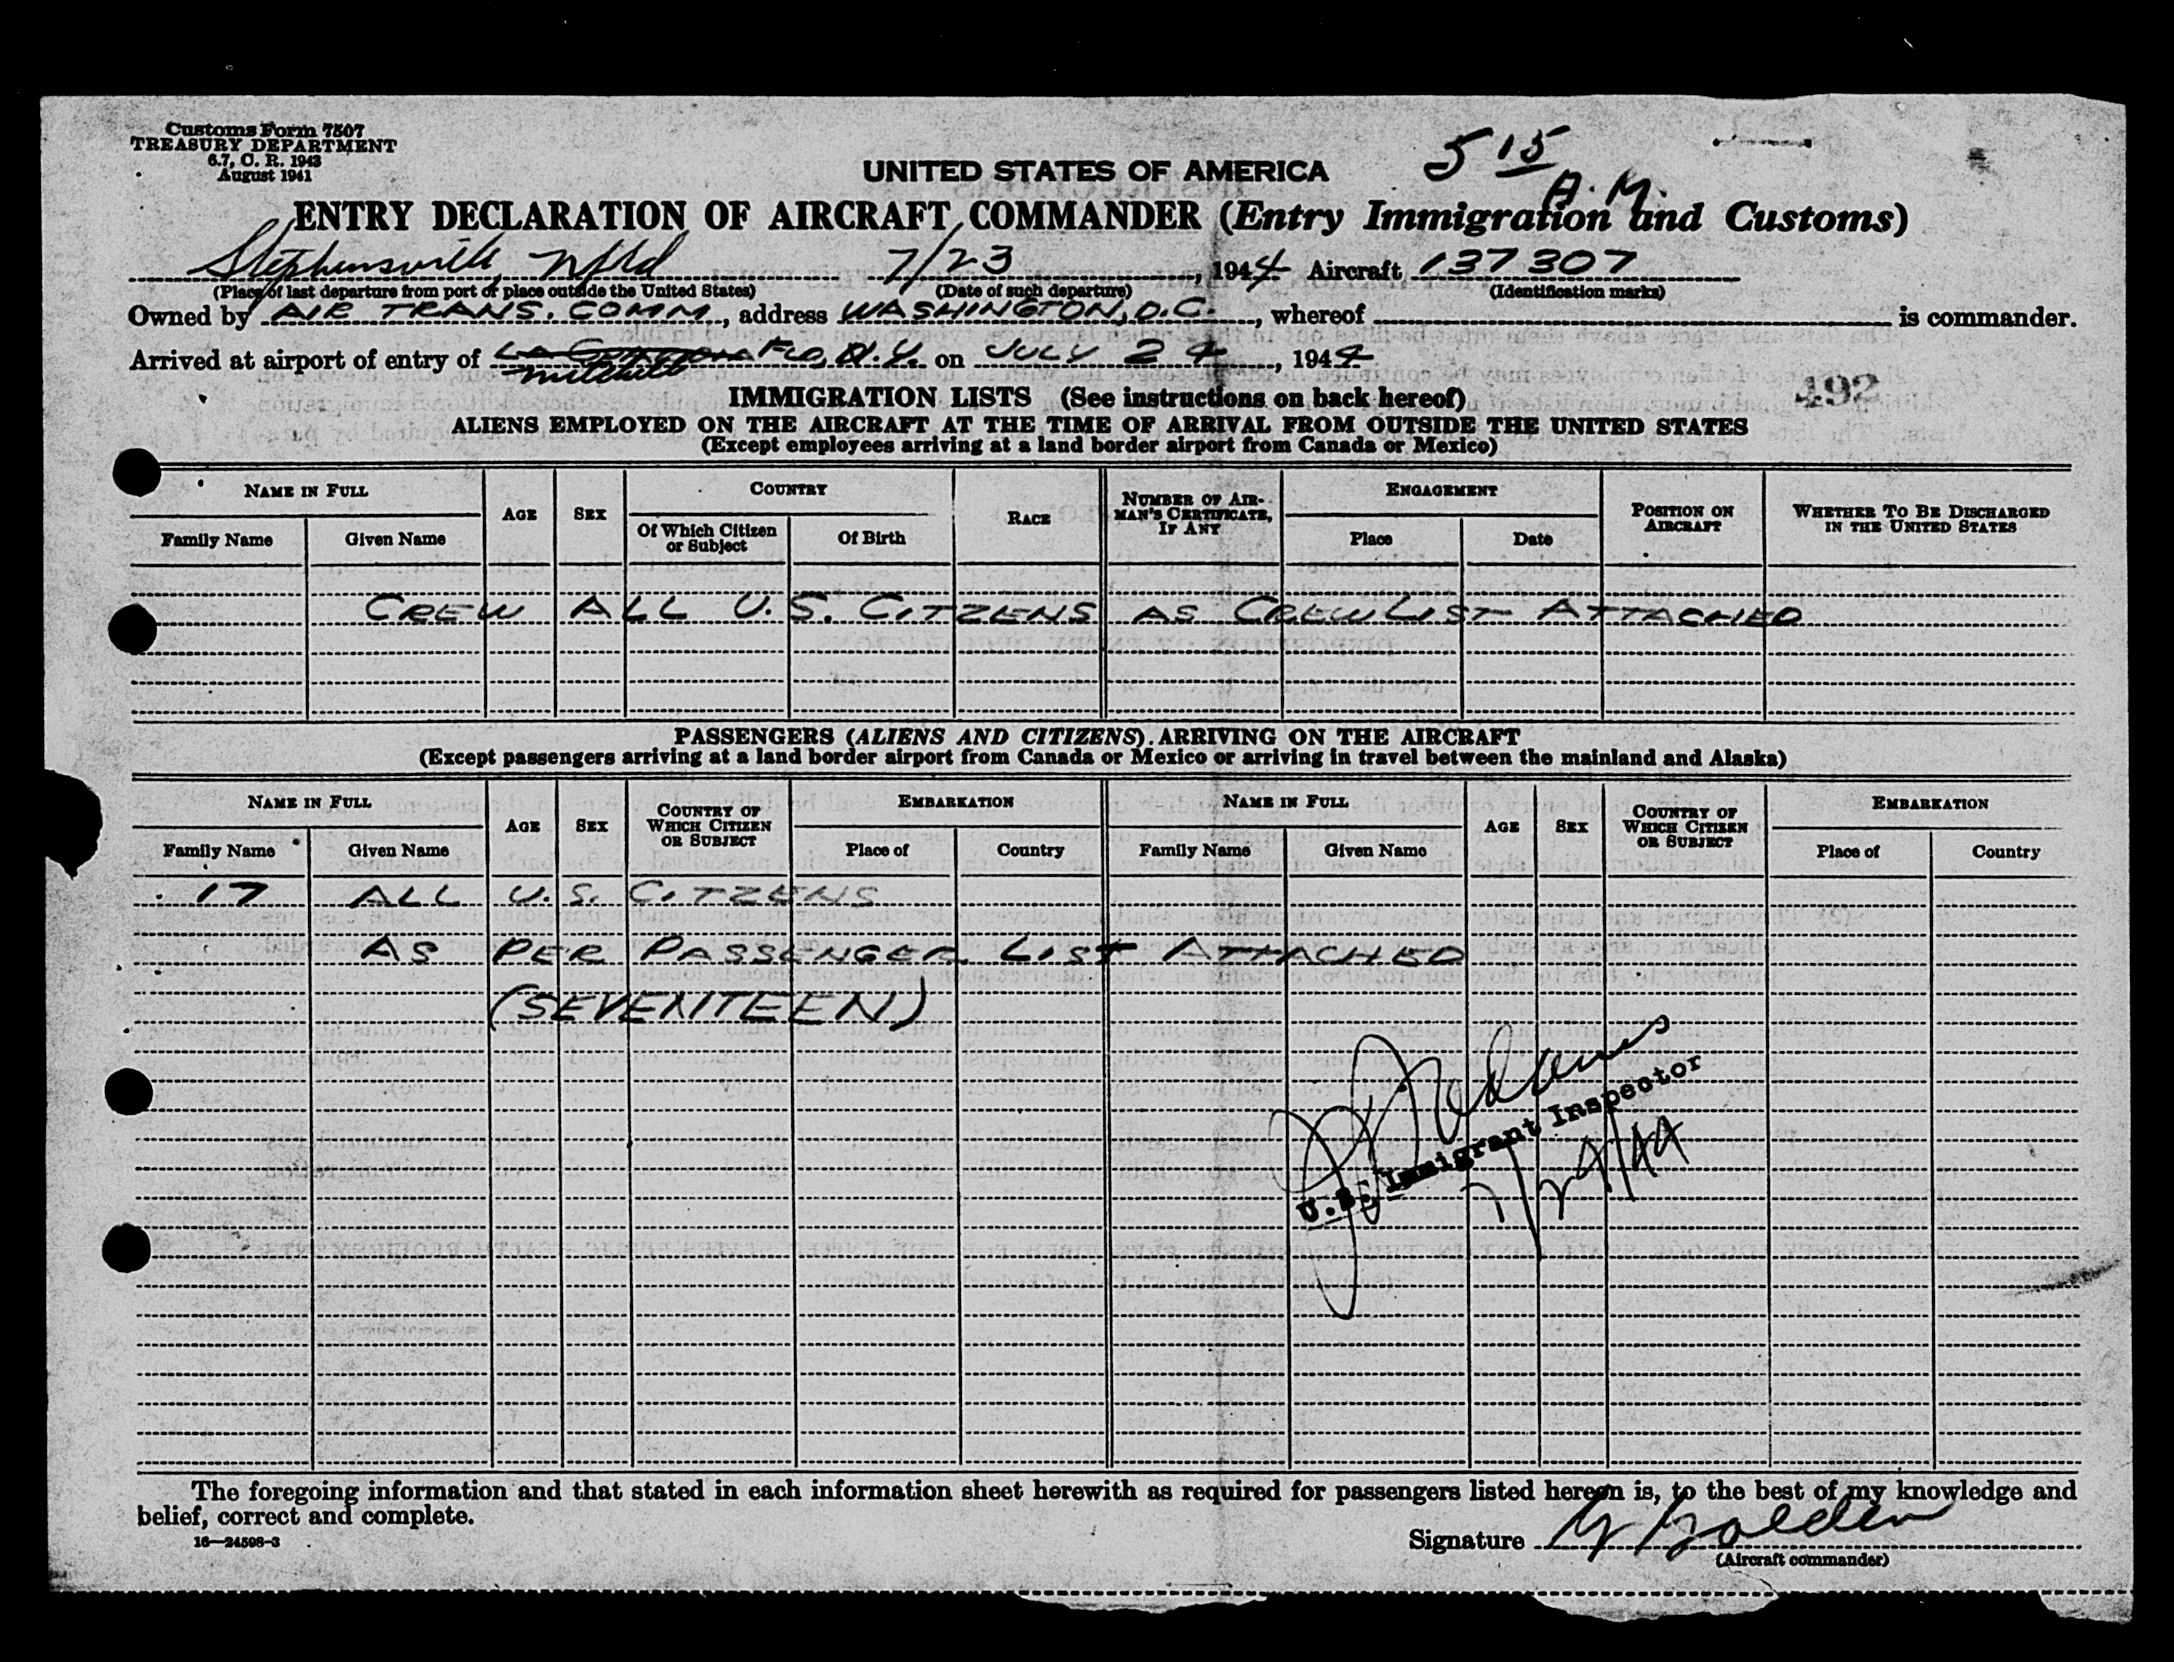 Customs Form 7507
TREASURY DEPARTMENT
6.7, C. R. 1943
August 1941
5 15 A.M.
UNITED STATES OF AMERICA
ENTRY DECLARATION OF AIRCRAFT COMMANDER (Entry Immigration and Customs)
Stephensville, Nfld 7/23, 1944 Aircraft 137307
(Place of last departure from port or place outside the United States) (Date of such departure) (Identification marks)
Owned by AIR TRANS. COMM., address WASHINGTON, D.C., whereof is commander.
Arrived at airport of entry of Fld, N.Y. on JULY 24, 1944
Mitchell
492
IMMIGRATION LISTS (See instructions on back hereof)
ALIENS EMPLOYED ON THE AIRCRAFT AT THE TIME OF ARRIVAL FROM OUTSIDE THE UNITED STATES
(Except employees arriving at a land border airport from Canada or Mexico)
NAME IN FULL AGE SEX COUNTRY RACE NUMBER OF AIRMAN'S CERTIFICATE, IF ANY ENGAGEMENT POSITION ON AIRCRAFT WHETHER TO BE DISCHARGED IN THE UNITED STATES
Family Name Given Name Of Which Citizen or Subject Of Birth Place Date
CREW ALL U.S. CITZENS AS CREW LIST ATTACHED
PASSENGERS (ALIENS AND CITIZENS) ARRIVING ON THE AIRCRAFT
(Except passengers arriving at a land border airport from Canada or Mexico or arriving in travel between the mainland and Alaska)
NAME IN FULL AGE SEX COUNTRY OF WHICH CITIZEN OR SUBJECT EMBARKATION NAME IN FULL AGE SEX COUNTRY OF WHICH CITIZEN OR SUBJECT EMBARKATION
Family Name Given Name Place of Country Family Name Given Name Place of Country
17 ALL U.S. CITZENS
AS PER PASSENGER LIST ATTACHED
(SEVENTEEN)
U.S. Immigrant Inspector
7/24/44
The foregoing information and that stated in each information sheet herewith as required for passengers listed hereon is, to the best of my knowledge and
belief, correct and complete.
16—24598-3
Signature Golden
(Aircraft commander)